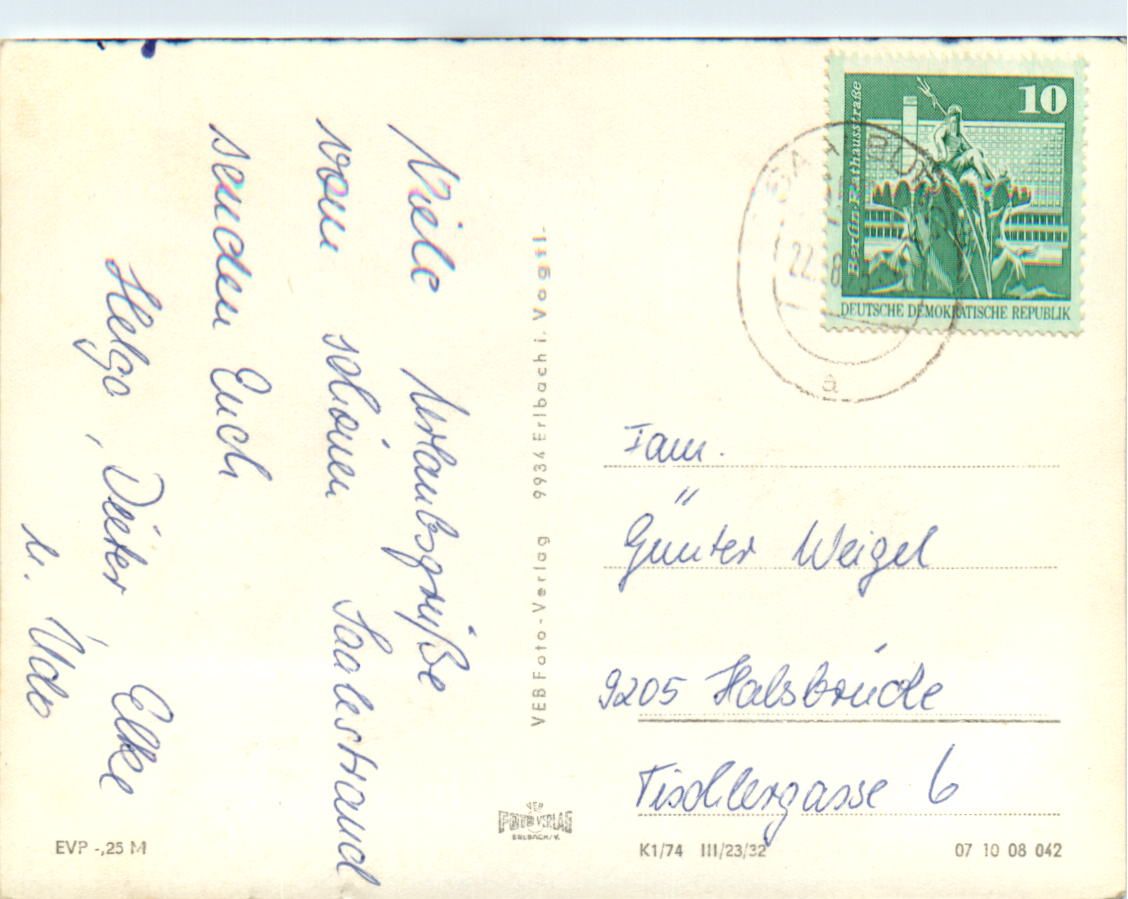 Viele Urlaubsgrüße
vom schönen Saalestrand
senden Euch
Helga, Dieter Elke
u. Udo
VEB Foto-Verlag 9934 Erlbach i. Vogtl.
10
Berlin-Rathausstraße
DEUTSCHE DEMOKRATISCHE REPUBLIK
22. 8
a
Fam.
Günter Weigel
9205 Halsbrücke
Tischlergasse 6
EVP -,25 M
VEB
FOTO-VERLAG
ERLBACH/V.
K1/74 III/23/32
07 10 08 042